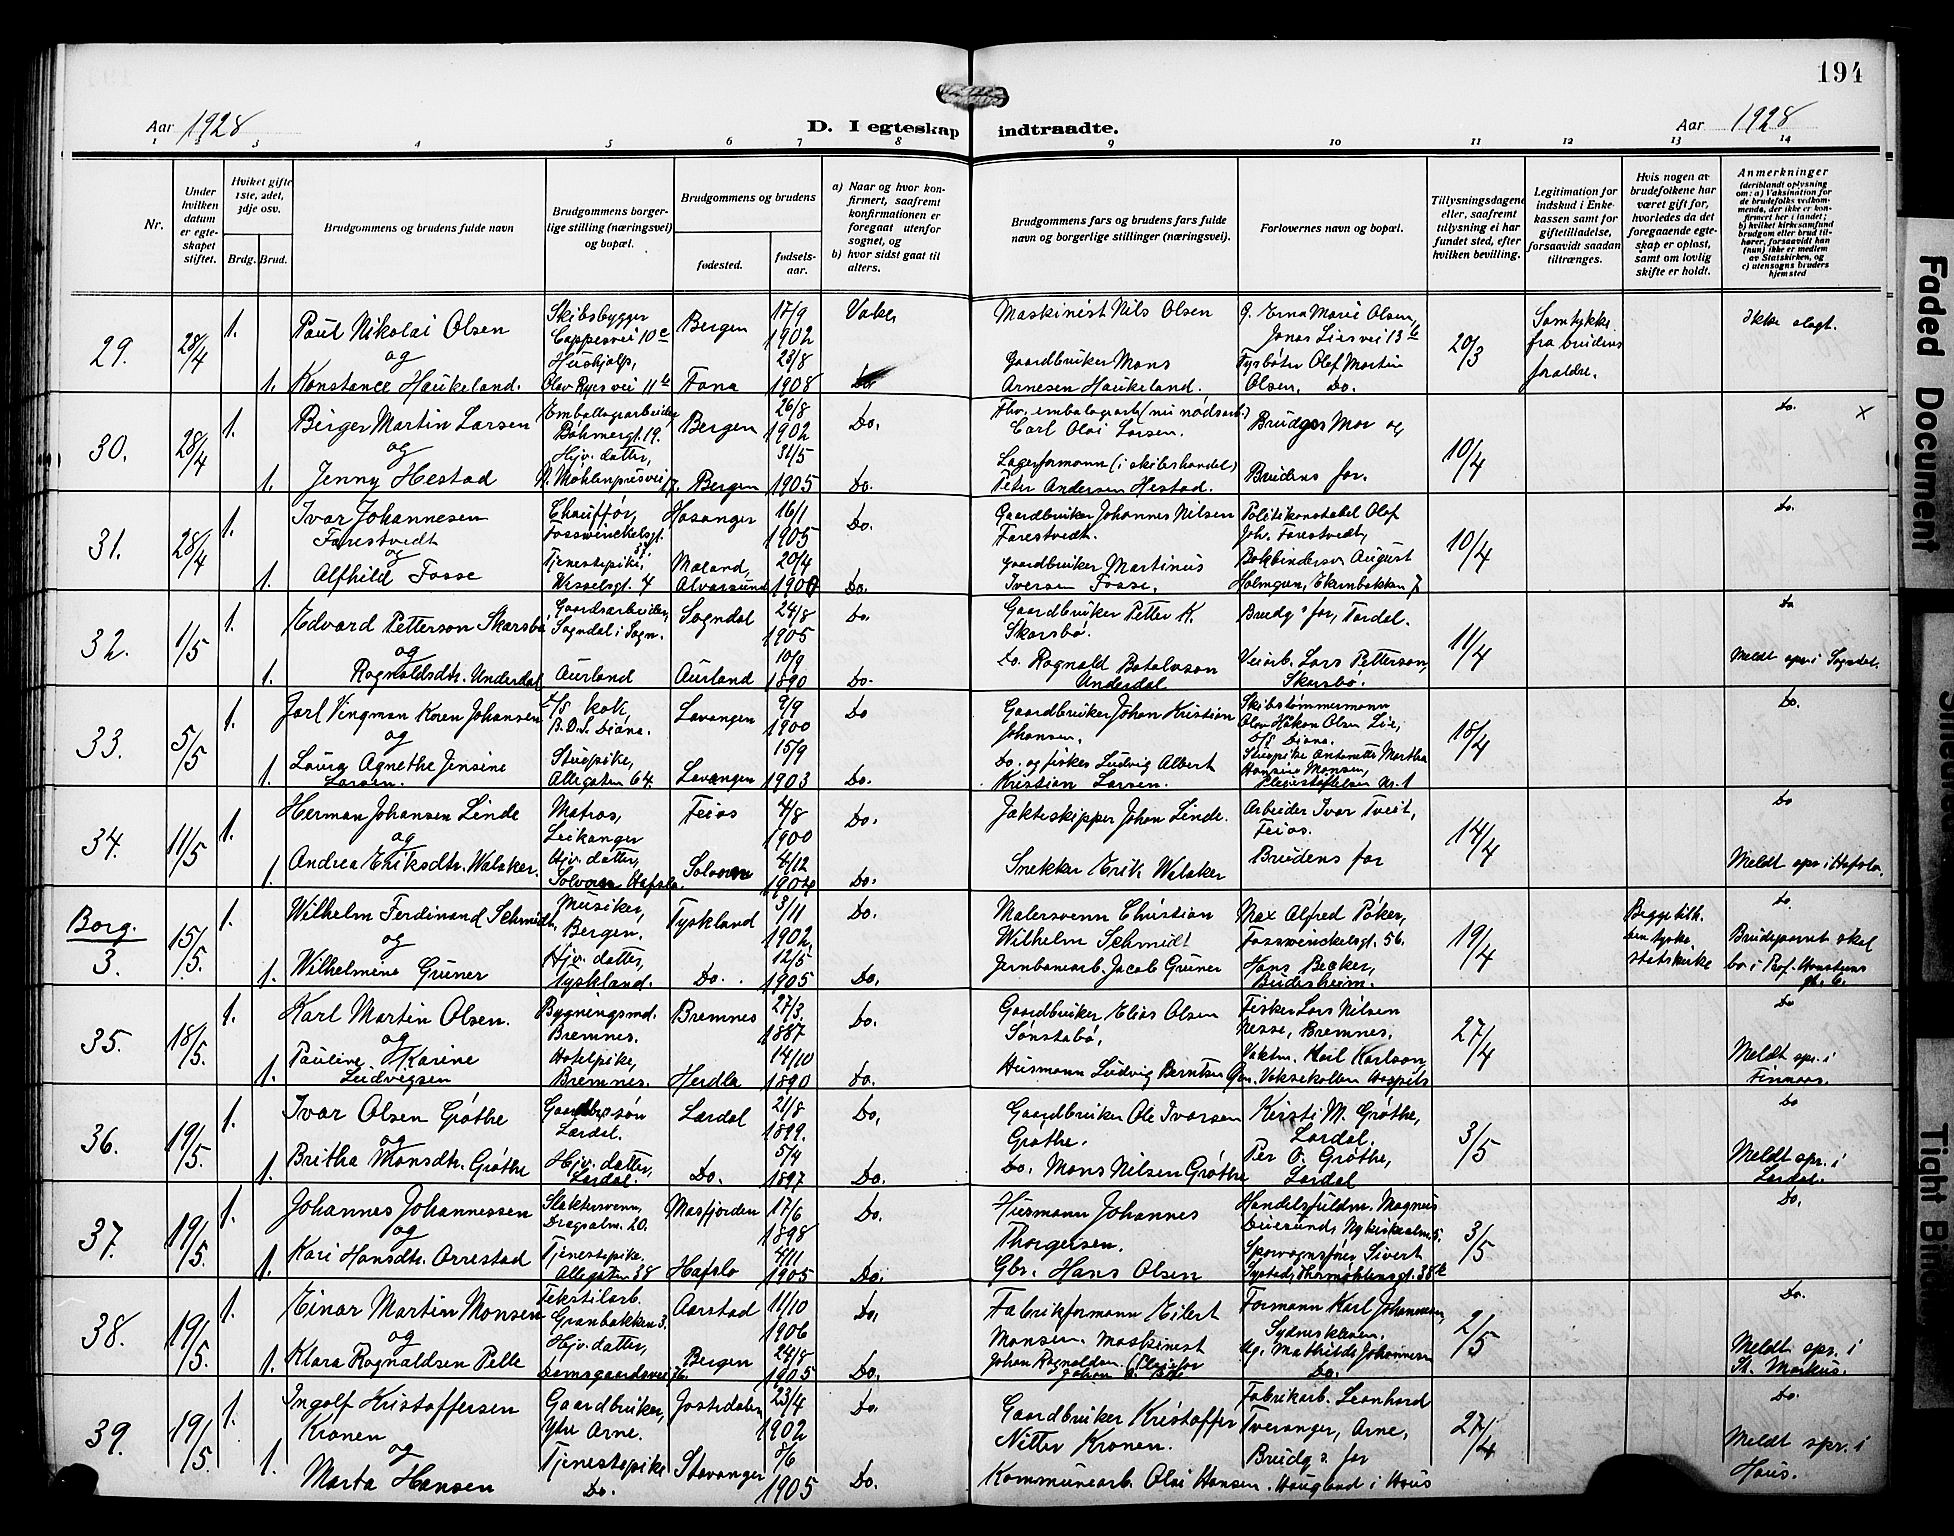 194
Aar 1928
D. I egteskap indtraadte.
Aar 1928
1 2 3 4 5 6 7 8 9 10 11 12 13 14
Nr.
Under hvilken datum er egteskapet stiftet.
Hvilket gifte 1ste, 2det, 3dje osv.
Brdg. Brud.
Brudgommens og brudens fulde navn
Brudgommens borgerlige stilling (næringsvei) og bopæl.
Brudgommens og brudens
fødested.
fødselsaar.
a) Naar og hvor konfirmert, saafremt konfirmationen er foregaat utenfor sognet, og
b) hvor sidst gaat til alters.
Brudgommens fars og brudens fars fulde navn og borgerlige stillinger (næringsvei).
Forlovernes navn og bopæl.
Tillysningsdagene eller, saafremt tillysning ei har fundet sted, efter hvilken bevilling.
Legitimation for indskud i Enkekassen samt for giftetilladelse, forsaavidt saadan tiltrænges.
Hvis nogen av brudefolkene har været gift før, hvorledes da det foregaaende egteskap er opløst, samt om lovlig skifte er holdt.
Anmerkninger
(deriblandt oplysning om: a) Vaksination for de brudefolks vedkommende, der ikke er konfirmert her i landet; b) hvilket kirkesamfund brudgom eller brud tilhører, forsaavidt han (hun) ikke er medlem av Statskirken, og c) utensogns bruders hjemsted
29. 28/4 1. Paul Nikolai Olsen
og
1. Konstance Haukeland.
Skibsbygger
Cappesvei 10 c
Hushjælp,
Olav Ryes vei 11 b
Bergen 17/9 1902
Fana 23/8 1908
Do.
Maskinist Nils Olsen
Gaardbruker Mons
Arnesen Haukeland.
g. Erna Marie Olsen,
Jonas Liesvei 13 b
Fyrbøter Olaf Martin
Olsen, Do.
20/3
Samtykke
fra brudens
forældre.
Ikke slegt.
30. 28/4 1. Birger Martin Larsen
og
1. Jenny Hestad
Emballagearbeider
Bøhmergt. 19.
Hjv. datter,
N. Møhlenprisvei 17.
Bergen 26/8 1902
Bergen 31/5 1905
Do.
Do.
Fhv. embalagearb. (nu nødsarb.)
Carl Olai Larsen.
Lagerformann (i skibshandel)
Peter Andersen Hestad.
Brudgs Mor og
Brudens far.
10/4
Do. x
31. 28/4 1. Ivar Johannesen
Farestvedt
og
1. Alfhild Fosse
Chauffør,
Fosswinckelsgt. 37.
Tjenestepike,
Wesselsgt. 4
Hosanger 16/1 1905
Mæland,
Alversund 20/4 1900
Do.
Do.
Gaardbruker Johannes Nilsen
Farestvedt.
Gaardbruker Martinus
Iversen Fosse.
Politikonstabel Olaf
Joh. Farestvedt,
Bokbindersv. August
Holmgren, Ekrenbakken 7
10/4
Do.
32. 1/5 1. Edvard Petterson Skarsbø
og
1. Ragnaldsdtr. Underdal
Gaardsarbeider,
Sogndal i Sogn.
Aurland
Sogndal 24/8 1905
Aurland 10/9 1890
Do.
Do.
Gaardbruker Petter K.
Skarsbø.
Do. Ragnald Botolvson
Underdal
Brudg.s far,
Veiarb. Lars Petterson,
Skarsbø.
11/4
Do
Meldt spr. i Sogndal.
33. 5/5 1. Jarl Vingman Koren Johansen
og
1. Laura Agnethe Jensine
Larsen.
kok,
B.D.S. Diana.
Stuepike,
Allegaten 64.
Lavangen 9/9 1900
Lavangen 15/9 1903
Do
Do.
Gaardbruker Johan Kristian
Johansen.
Do. og fisker Ludvig Albert
Kristian Larsen.
Skibstømmermann
Olav Håkon Olsen Lie,
D/S Diana.
Stuepike Antonette Martha
Hansine Monsen,
Pleiestiftelsen Nr. 1
18/4
Do.
34. 11/5 1. Herman Johansen Linde
og
1. Andrea Eriksdtr. Walaker.
Matros,
Leikanger
Hjv. datter,
Solvorn Hafslo.
Feios 4/8 1900
Solvorn 4/12 1904
Do.
Do.
Jakteskipper Johan Linde.
Snekker Erik Walaker
Arbeider Ivar Tveit,
Feios.
Brudens far
14/4
Do
Meldt spr. i Hafslo.
Borg. 3. 15/5. 1. Wilhelm Ferdinand Schmidt,
og
1. Wilhelmine Gruner
Musiker,
Bergen.
Hjv. datter,
Tyskland.
Tyskland 3/11 1902.
Do. 12/5 1905
Do.
Do.
Malersvenn Christian
Wilhelm Schmidt
Jernbanearb. Jacob Gruner
Max Alfred Pöker,
Fosswinckelsgt. 56.
Hans Becker,
Büdesheim.
19/4
Begge tilh.
den tyske
statskirke
Do.
Brudeparret skal
bo i Prof. Hansteens
gt. 6.
35. 18/5. 1. Karl Martin Olsen.
og
1. Pauline Karine
Ludvigsen
Bygningsmd.
Bremnes.
Hotelpike,
Bremnes.
Bremnes 27/3. 1887
Herdla 14/10 1890
Do.
Do.
Gaardbruker Elias Olsen
Sønstabø,
Husmann Ludvig Berntsen
Fisker Lars Nilsen
Nesse, Bremnes,
Vaktm. Karlson,
27/4
Do
Meldt spr. i
Finnaas.
36. 19/5. 1. Ivar Olsen Grøthe
og
1. Britha Monsdtr. Grøthe
Lærdal.
Hjv. datter,
Lærdal.
Lærdal 21/8 1899.
Do. 5/4 1897
Do.
Do.
Gaardbruker Ole Ivarsen
Grøthe.
Do. Mons Nilsen Grøthe
Kirsti M. Grøthe,
Lærdal.
Per O. Grøthe,
Lærdal
3/5
Do
Meldt spr. i
Lærdal.
37. 19/5. 1. Johannes Johannessen
og
1. Kari Hansdtr. Orrestad
Slaktersvenn,
Dragsalm. 20.
Tjenestepike.
Allegaten 38
Masfjorden 17/6 1898
Hafslo 4/11 1905
Do.
Do.
Husmann Johannes
Thorgersen.
Gbr. Hans Olsen
Handelsfuldm. Magnus
Nykirkealm. 5.
Sporvognsfører Sivert
Systad, Thormøhlensgt. 38 b
3/5
Do.
38. 19/5. 1. Einar Martin Monsen
og
1. Klara Ragnaldsen Pelle
Tekstilarb.
Granbakken 3.
Hjv. datter,
Damsgaardsvei 76.
Aarstad 11/10 1906
Bergen 24/8 1905
Do.
Do.
Fabrikformann Eilert
Monsen. Maskinist
Johan Ragnaldsen
Formann Karl Johannesen,
Sydneskleven.
Mathilde Johannesen
Do.
2/5
Do.
Meldt spr. i
St. Markus.
39. 19/5. 1. Ingolf Kristoffersen
Kronen
og
1. Marta Hansen
Gaardbruker,
Ytre Arne.
Tjenestepike
Do.
Jostedalen 23/4 1902
Stavanger 8/6 1905
Do.
Do.
Gaardbruker Kristoffer
Nitter Kronen.
Kommunearb. Olai Hansen.
Fabrikarb. Leonhard
Tveranger, Arne,
Brudg.s far
Haugland i Haus
27/4
Do
Meldt spr. i
Haus.
Faded Document
Tight Bind